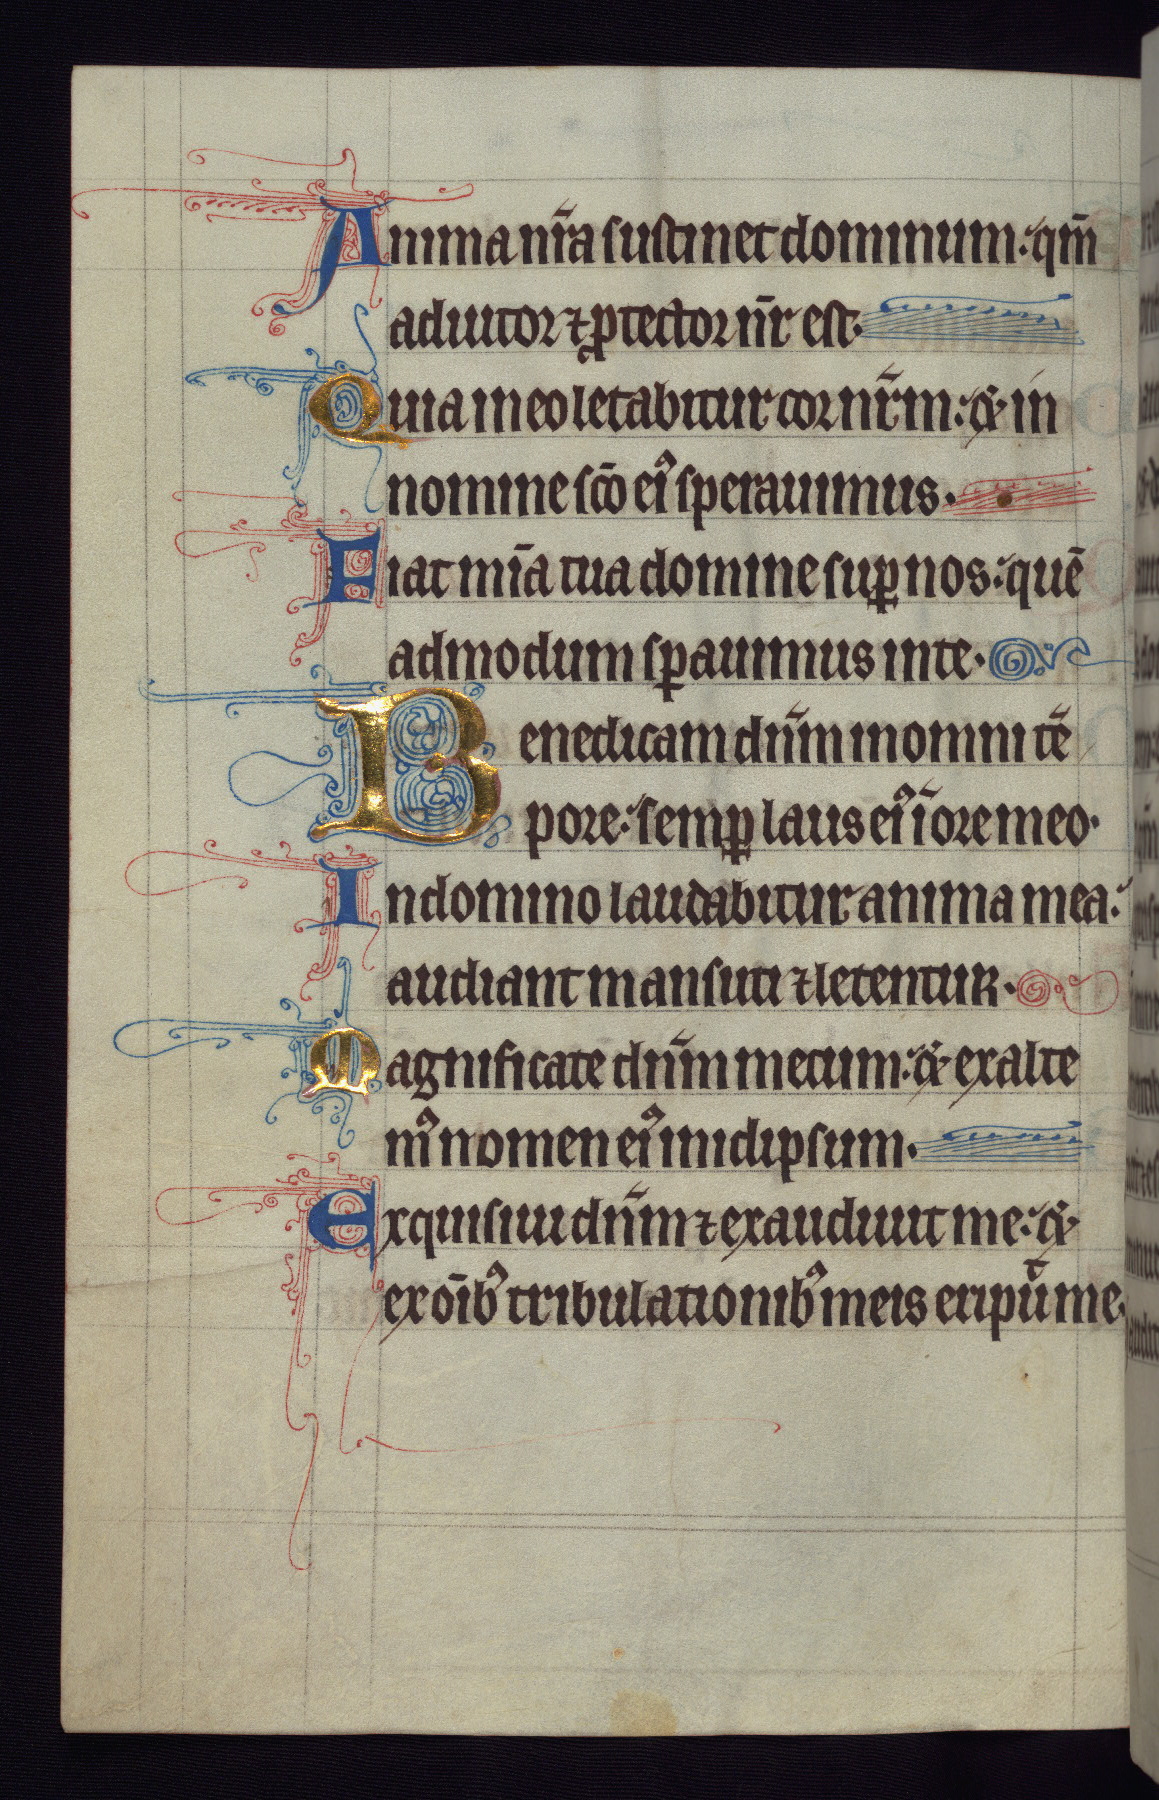 Anima nr̄a sustinet dominum: qm̄
adiutor ⁊ ꝓtector nr̄ est.
Quia in eo letabitur cor nr̄m: & in
nomine sc̄o eiꝰ sperauimus.
Fiat mīa tua domine suꝑ nos: quē
admodum sꝑauimus in te.
Benedicam dn̄m in omni tē
pore: semꝑ laus eiꝰ ī ore meo.
In domino laudabitur anima mea:
audiant mansuti ⁊ letentur.
Magnificate dn̄m mecum: & exalte
mꝰ nomen eiꝰ in idipsum.
Exquisiui dn̄m ⁊ exaudiuit me: &
ex oīb' tribulationib' meis eripuͭ me.